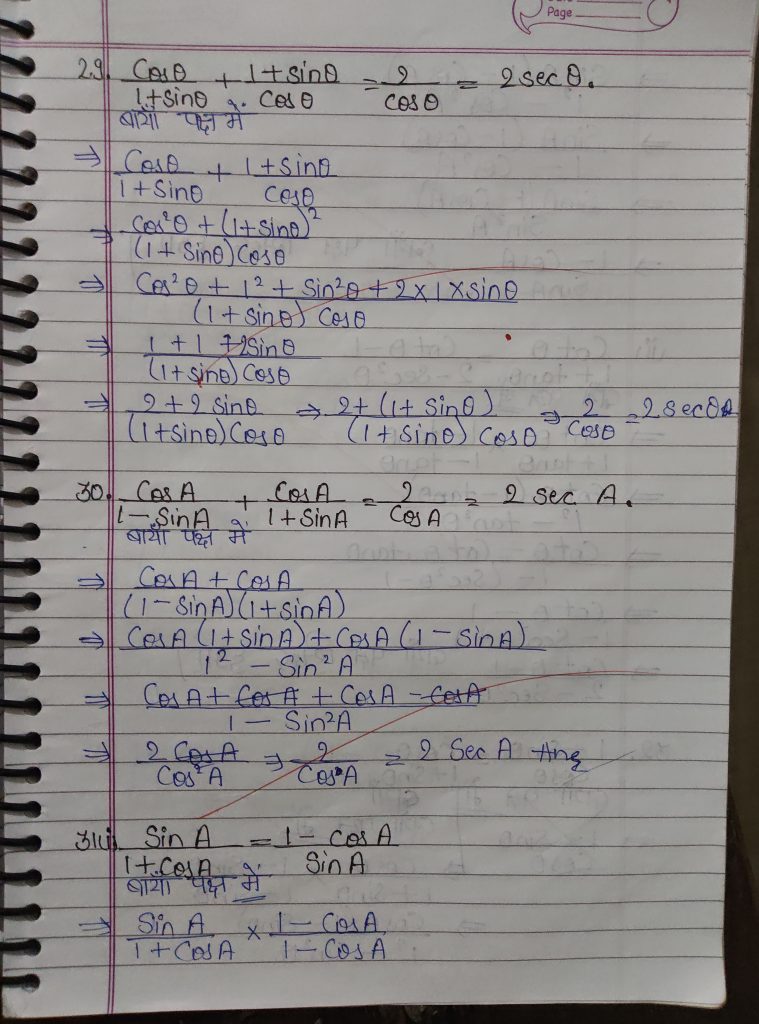 Page
29. Cosθ/1+sinθ + 1+sinθ/Cosθ = 2/cosθ = 2secθ.
बायाँ पक्ष में
⇒ Cosθ/1+Sinθ + 1+Sinθ/Cosθ
⇒ Cos²θ + (1+Sinθ)²/(1+Sinθ)Cosθ
⇒ Cos²θ + 1² + Sin²θ + 2×1×sinθ/(1+Sinθ) Cosθ
⇒ 1+1+2Sinθ/(1+sinθ)Cosθ
⇒ 2+2 Sinθ/(1+sinθ)Cosθ ⇒ 2+(1+Sinθ)/(1+Sinθ) Cosθ ⇒ 2/Cosθ = 2Secθ
30. CosA/1-SinA + CosA/1+SinA = 2/CosA = 2 Sec A.
बायाँ पक्ष में
⇒ CosA + CosA/(1-SinA)(1+sinA)
⇒ CosA(1+sinA)+CosA(1-SinA)/1² - Sin²A
⇒ CosA + CosA + CosA - CosA/1 - Sin²A
⇒ 2 CosA/Cos²A ⇒ 2/CosA = 2 Sec A Ans
31(i) Sin A/1+CosA = 1-CosA/SinA
बायाँ पक्ष में
⇒ Sin A/1+CosA × 1-CosA/1-CosA